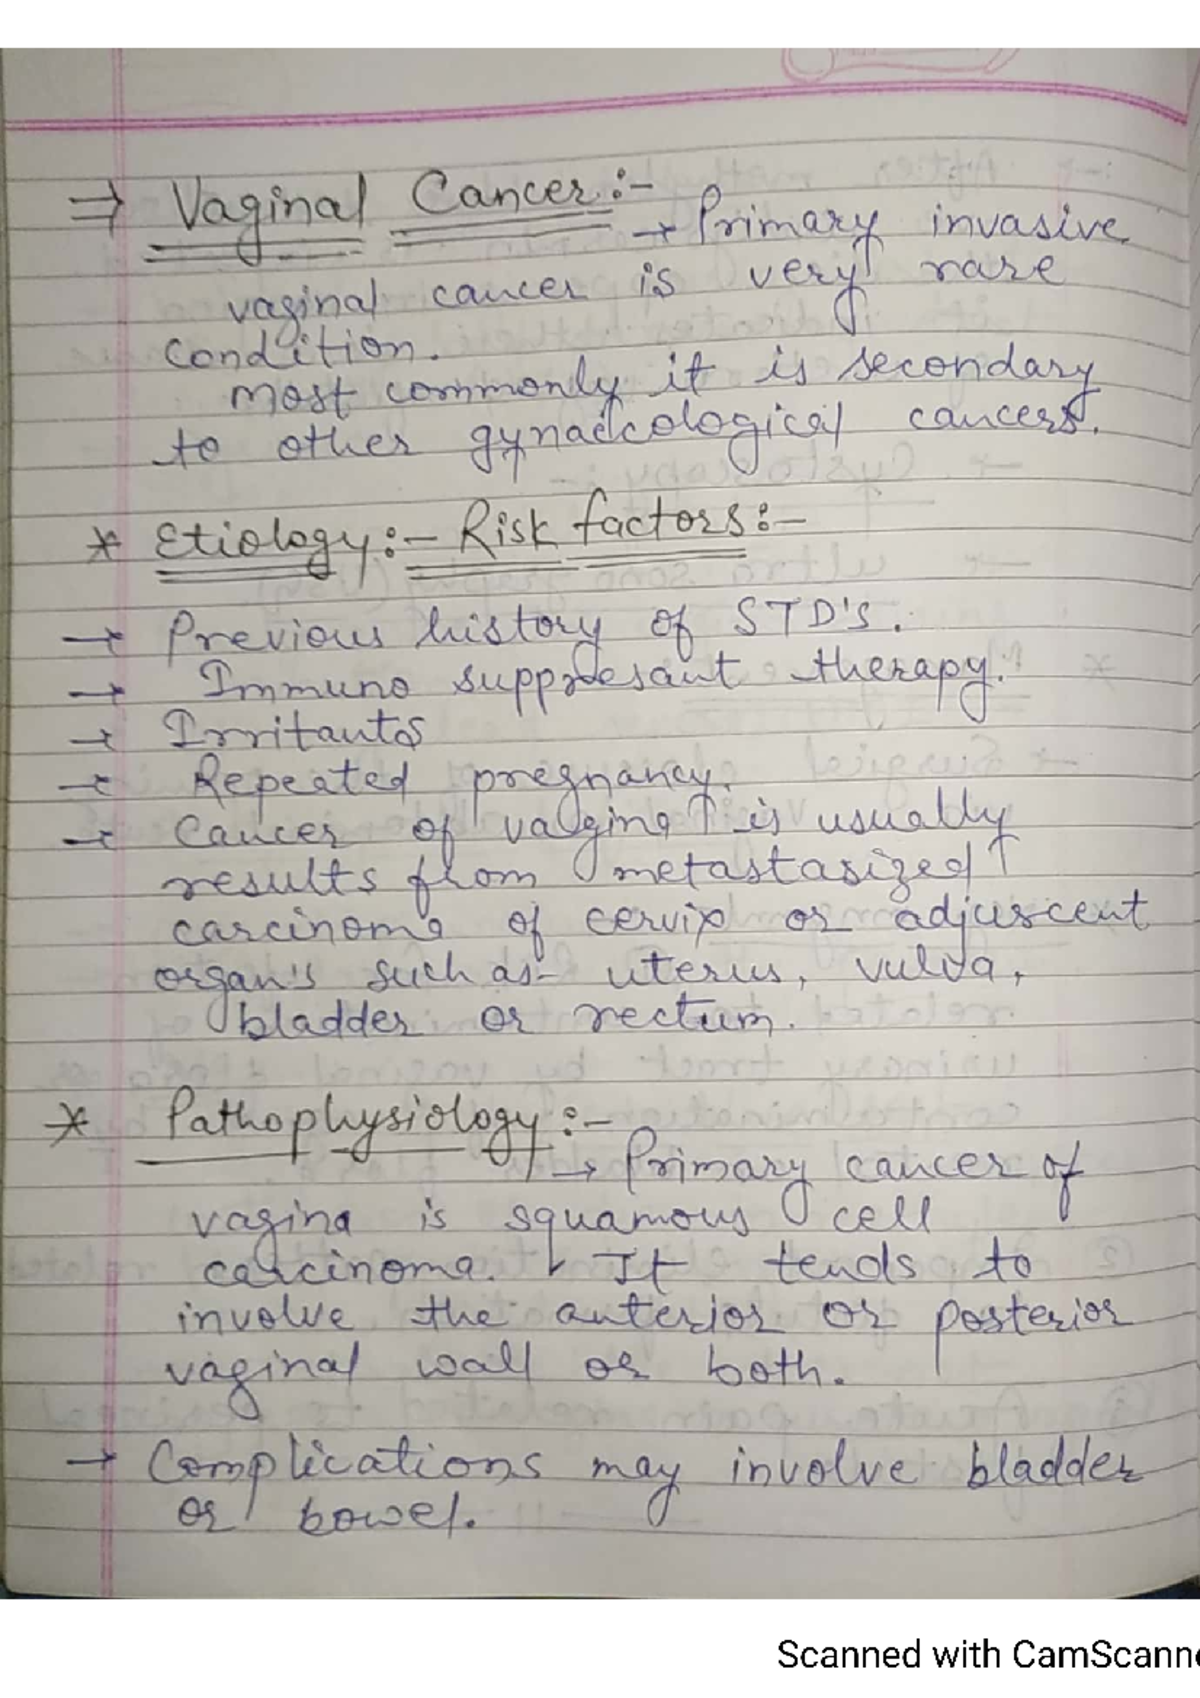 ⇒ Vaginal Cancer :-
→ Primary invasive
vaginal cancer is very rare
condition.
most commonly it is secondary
to other gynaecological cancers.
* Etiology :- Risk factors :-
→ Previous history of STD's.
→ Immuno suppresant therapy.
→ Irritants
→ Repeated pregnancy.
→ Cancer of vagina is usually
results from metastasized
carcinoma of cervix or adjuscent
organ's such as- uterus, vulva,
bladder or rectum.
* Pathophysiology :-
→ Primary cancer of
vagina is squamous cell
carcinoma. It tends to
involve the anterior or posterior
vaginal wall or both.
→ Complications may involve bladder
or bowel.
Scanned with CamScanne